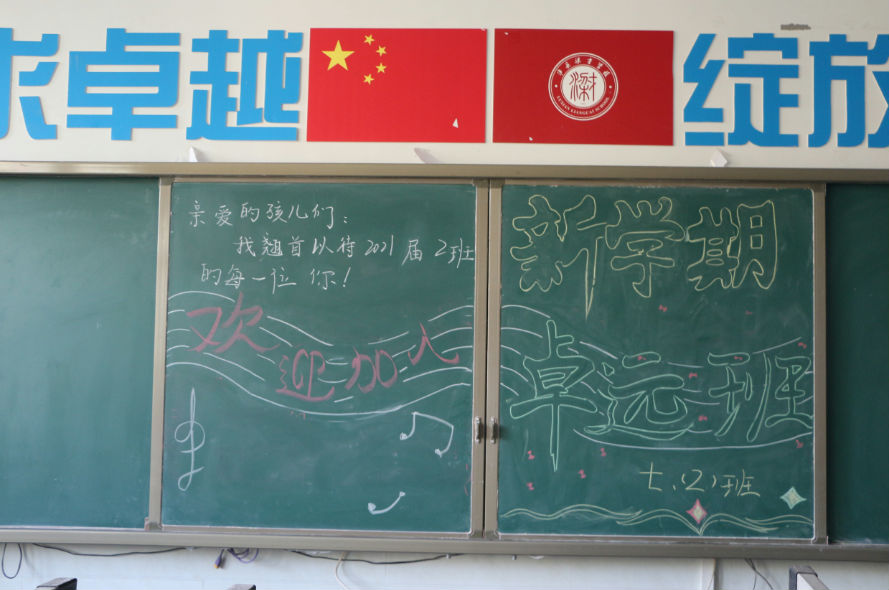 求卓越
绽放
亲爱的孩儿们：
我翘首以待2021届2班
的每一位你！
欢迎加入
新学期
卓远班
七.(2)班